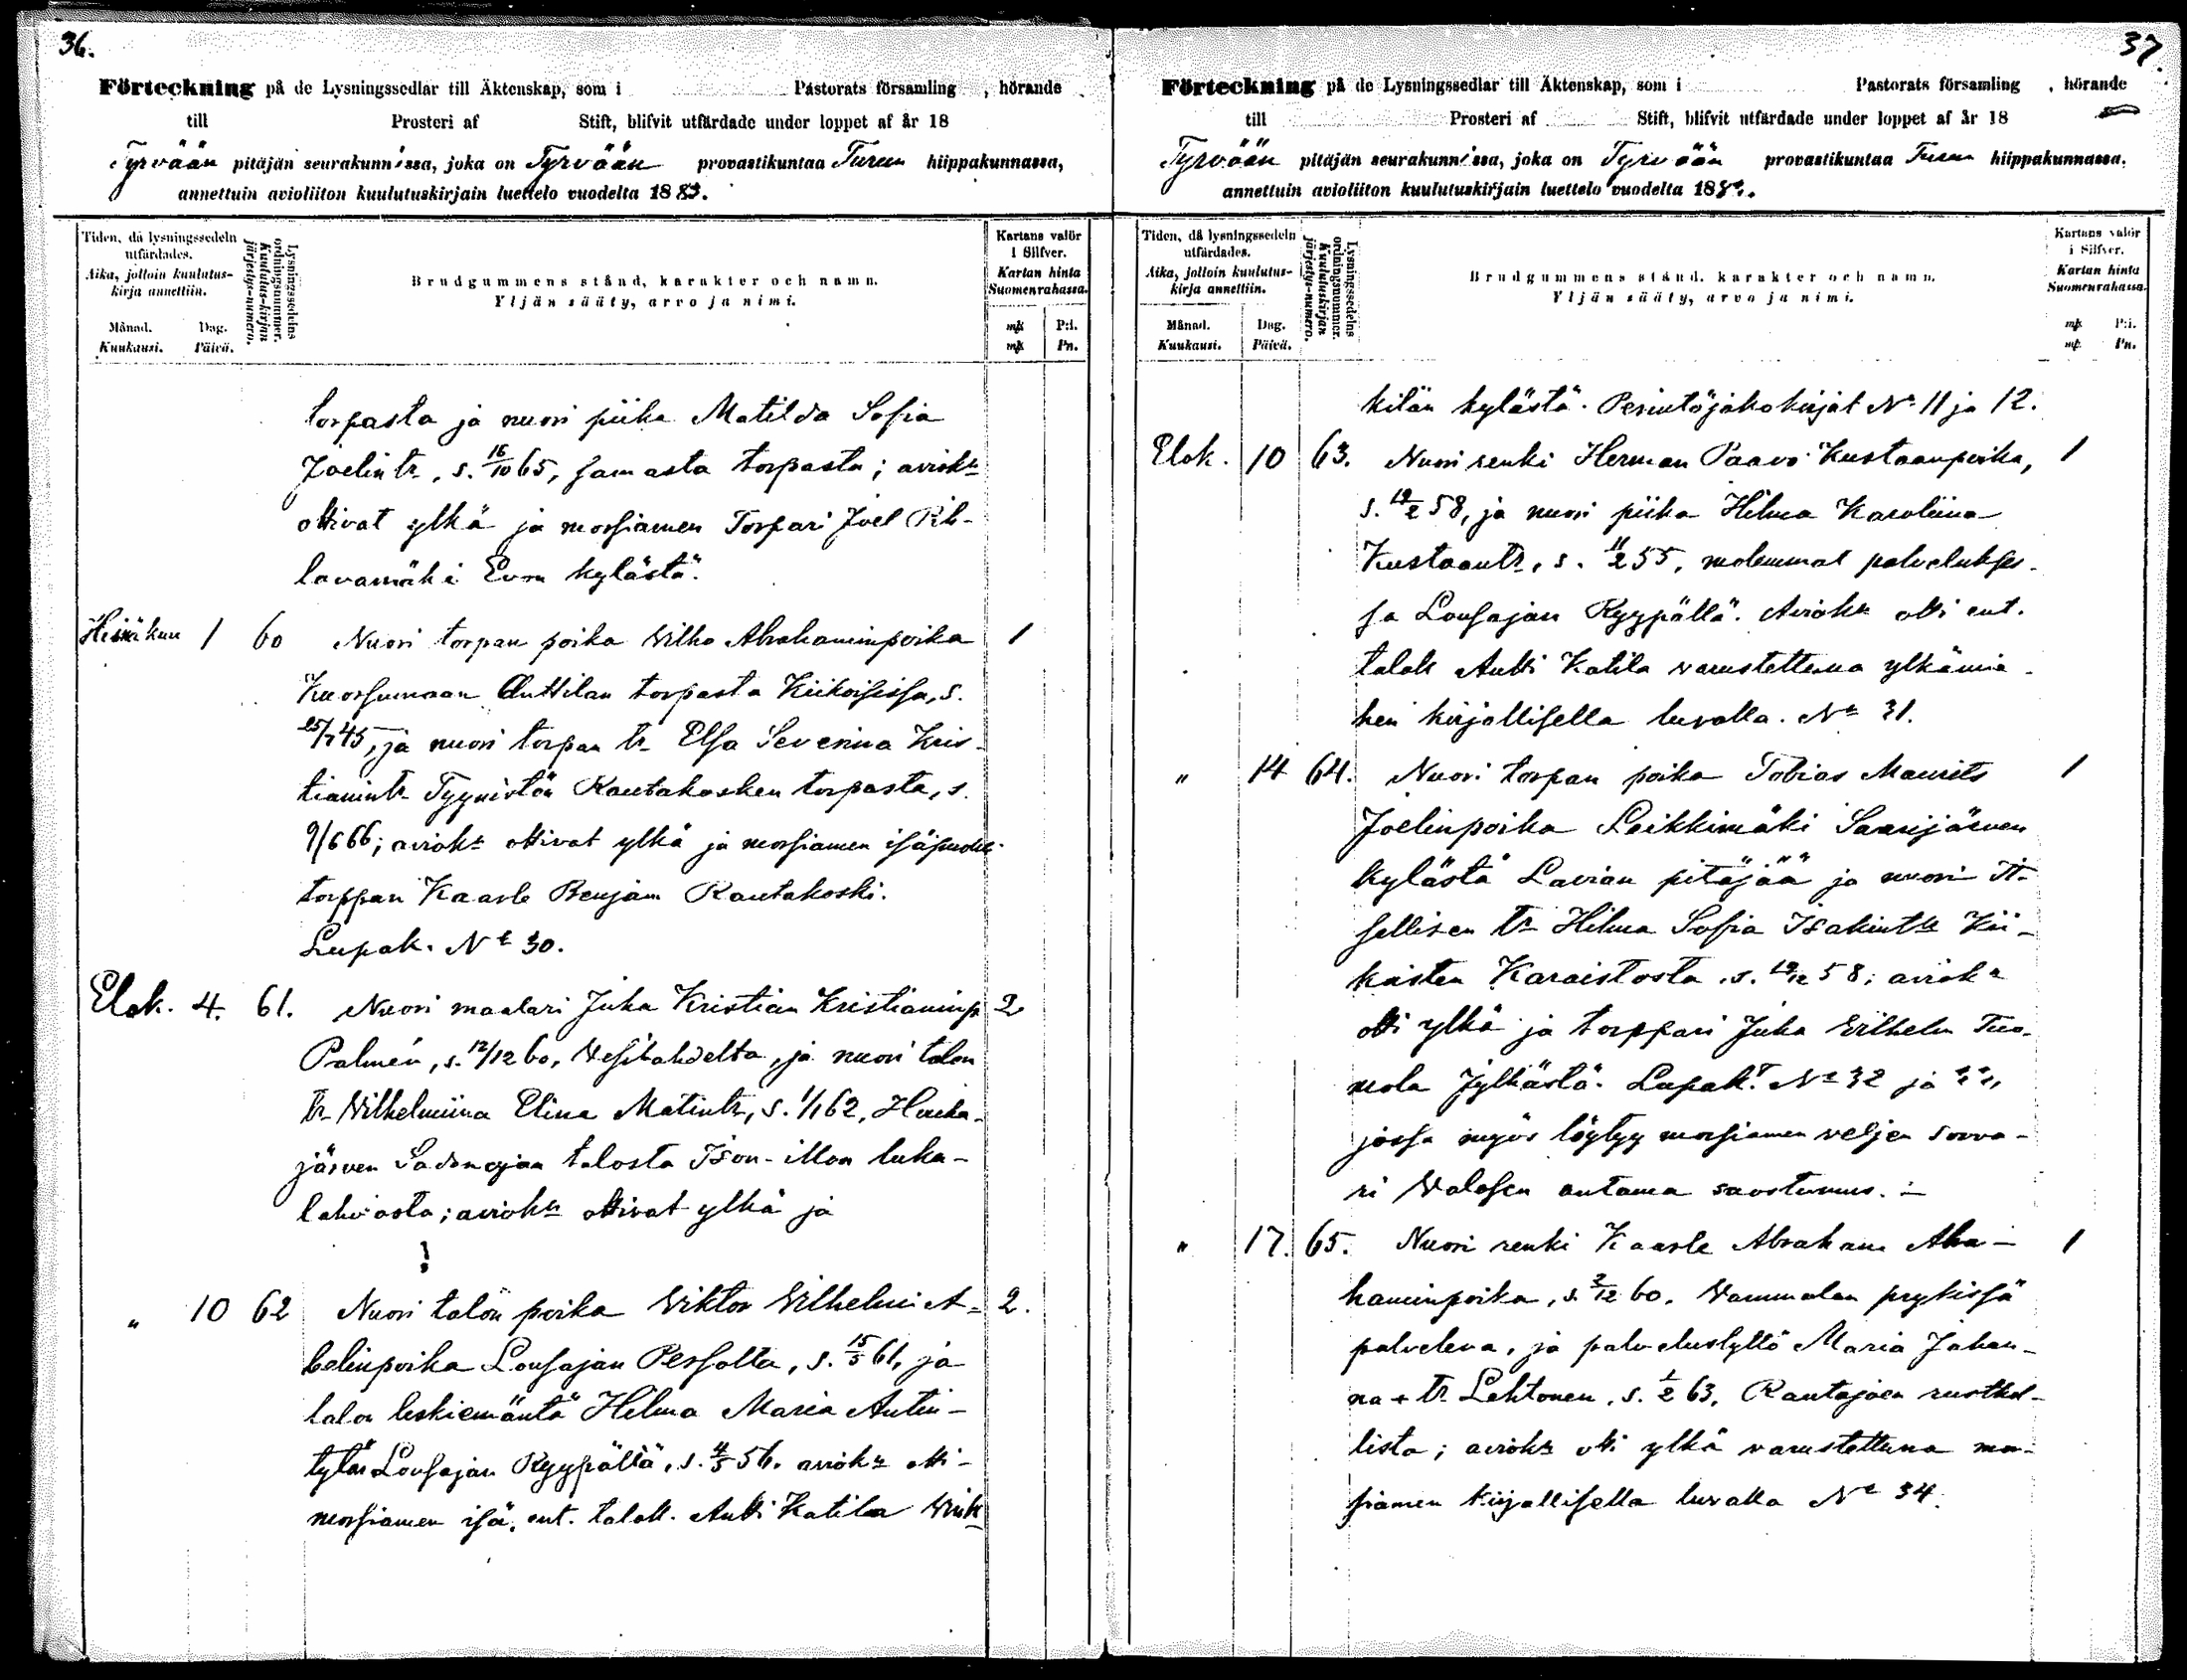 36.
Förteckning på de Lysningssedlar till Äktenskap, som i Pastorats församling , hörande
till Prosteri af Stift, blifvit utfärdade under loppet af år 18
Tyrvään pitäjän seurakunnissa, joka on Tyrvään provastikuntaa Turun hiippakunnassa,
annettuin avioliiton kuulutuskirjain luettelo vuodelta 1883.
Tiden, då lysningssedeln utfärdades.
Aika, jolloin kuulutus-kirja annettiin.
Månad. Dag.
Kuukausi. Päivä.
Lysningssedelns ordningsnummer.
Kuulutus-kirjan järjestys-numero.
Brudgummens stånd, karakter och namn.
Yljän sääty, arvo ja nimi.
Kartans valör i Silfver.
Kartan hinta Suomenrahassa.
mk P:i.
mk Pn.
torpasta ja nuori piika Matilda Sofia
Joelintr, s. 16/10 65, samasta torpasta; aviok:n
ottivat ylkä ja morsiamen Torpari Joel
kylästä.
Heinäkuu 1 60 Nuori torpan poika Vilho Abrahaminpoika 1
Kuorsumaan Anttilan torpasta Kiikoisissa, s.
25/7 45, ja nuori torpan tr Elsa Severina Kris-
tianintr Tyynistön Rautakosken torpasta, s.
9/6 66; aviok:n ottivat ylkä ja morsiamen isäpuoli
torppari Kaarle Benjam Rautakoski.
Lupak. No 30.
Elok. 4. 61. Nuori maalari Juha Kristian Kristianinp. 2
Palmén, s. 12/12 60, Vesilahdelta, ja nuori talon
tr Vilhelmiina Elina Matintr, s. 1/1 62, Houha-
järven talosta luka-
lahdosta; aviok:n ottivat ylkä ja
!
" 10 62 Nuori talon poika Viktor Vilhelmi A- 2.
belinpoika Lousajan Pessalta, s. 15/5 61, ja
talon leskiemäntä Hilma Maria Antin-
tytär Lousajan Ryypältä, s. 4/5 56. aviok:n otti
morsiamen isä, ent. talok. Antti Katila
37.
Förteckning på de Lysningssedlar till Äktenskap, som i Pastorats församling , hörande
till Prosteri af Stift, blifvit utfärdade under loppet af år 18
Tyrvään pitäjän seurakunnissa, joka on Tyrvään provastikuntaa Turun hiippakunnassa.
annettuin avioliiton kuulutuskirjain luettelo vuodelta 188
Tiden, då lysningssedeln utfärdades.
Aika, jolloin kuulutus-kirja annettiin.
Månad. Dag.
Kuukausi. Päivä.
Lysningssedelns ordningsnummer.
Kuulutuskirjan järjestys-numero.
Brudgummens stånd, karakter och namn.
Yljän sääty, arvo ja nimi.
Kartans valör i Silfver.
Kartan hinta Suomenrahassa.
mk P:i.
mk Pn.
kilän kylästä. Perintöjakokirjat No 11 ja 12.
Elok. 10 63. Nuori renki Herman Paavo Kustaanpoika, 1
s. 19/2 58, ja nuori piika Hilma Karoliina
Kustaantr, s. 11/2 55, molemmat palvelukses-
sa Lousajan Ryypällä. Aviok:n otti ent.
talok Antti Katila varustettuna ylkämie-
hen kirjallisella luvalla. No 31.
" 14 64. Nuori torpan poika Tobias Maurits 1
Joelinpoika Leikkimäki Saarijärven
kylästä Lavian pitäjää ja nuori it-
sellisen tr Hilma Sofia Isakintr Kii-
kaisten Karaistosta, s. 19/12 58; aviok:n
otti ylkä ja torppari Juha Vilhelm Tuo-
mola Jylhästä. Lupak. No 32 ja 33,
jossa myös löytyy morsiamen veljen sorva-
ri antama suostumus. –
" 17. 65. Nuori renki Kaarle Abraham Abra- 1
haminpoika, s. 3/12 60, Vammalan prykissä
palveleva, ja palvelustyttö Maria Johan-
na + tr Lehtonen, s. 1/2 63, Rautajoen rusthol-
lista; aviok:n otti ylkä varustettuna mor-
siamen kirjallisella luvalla No 34.